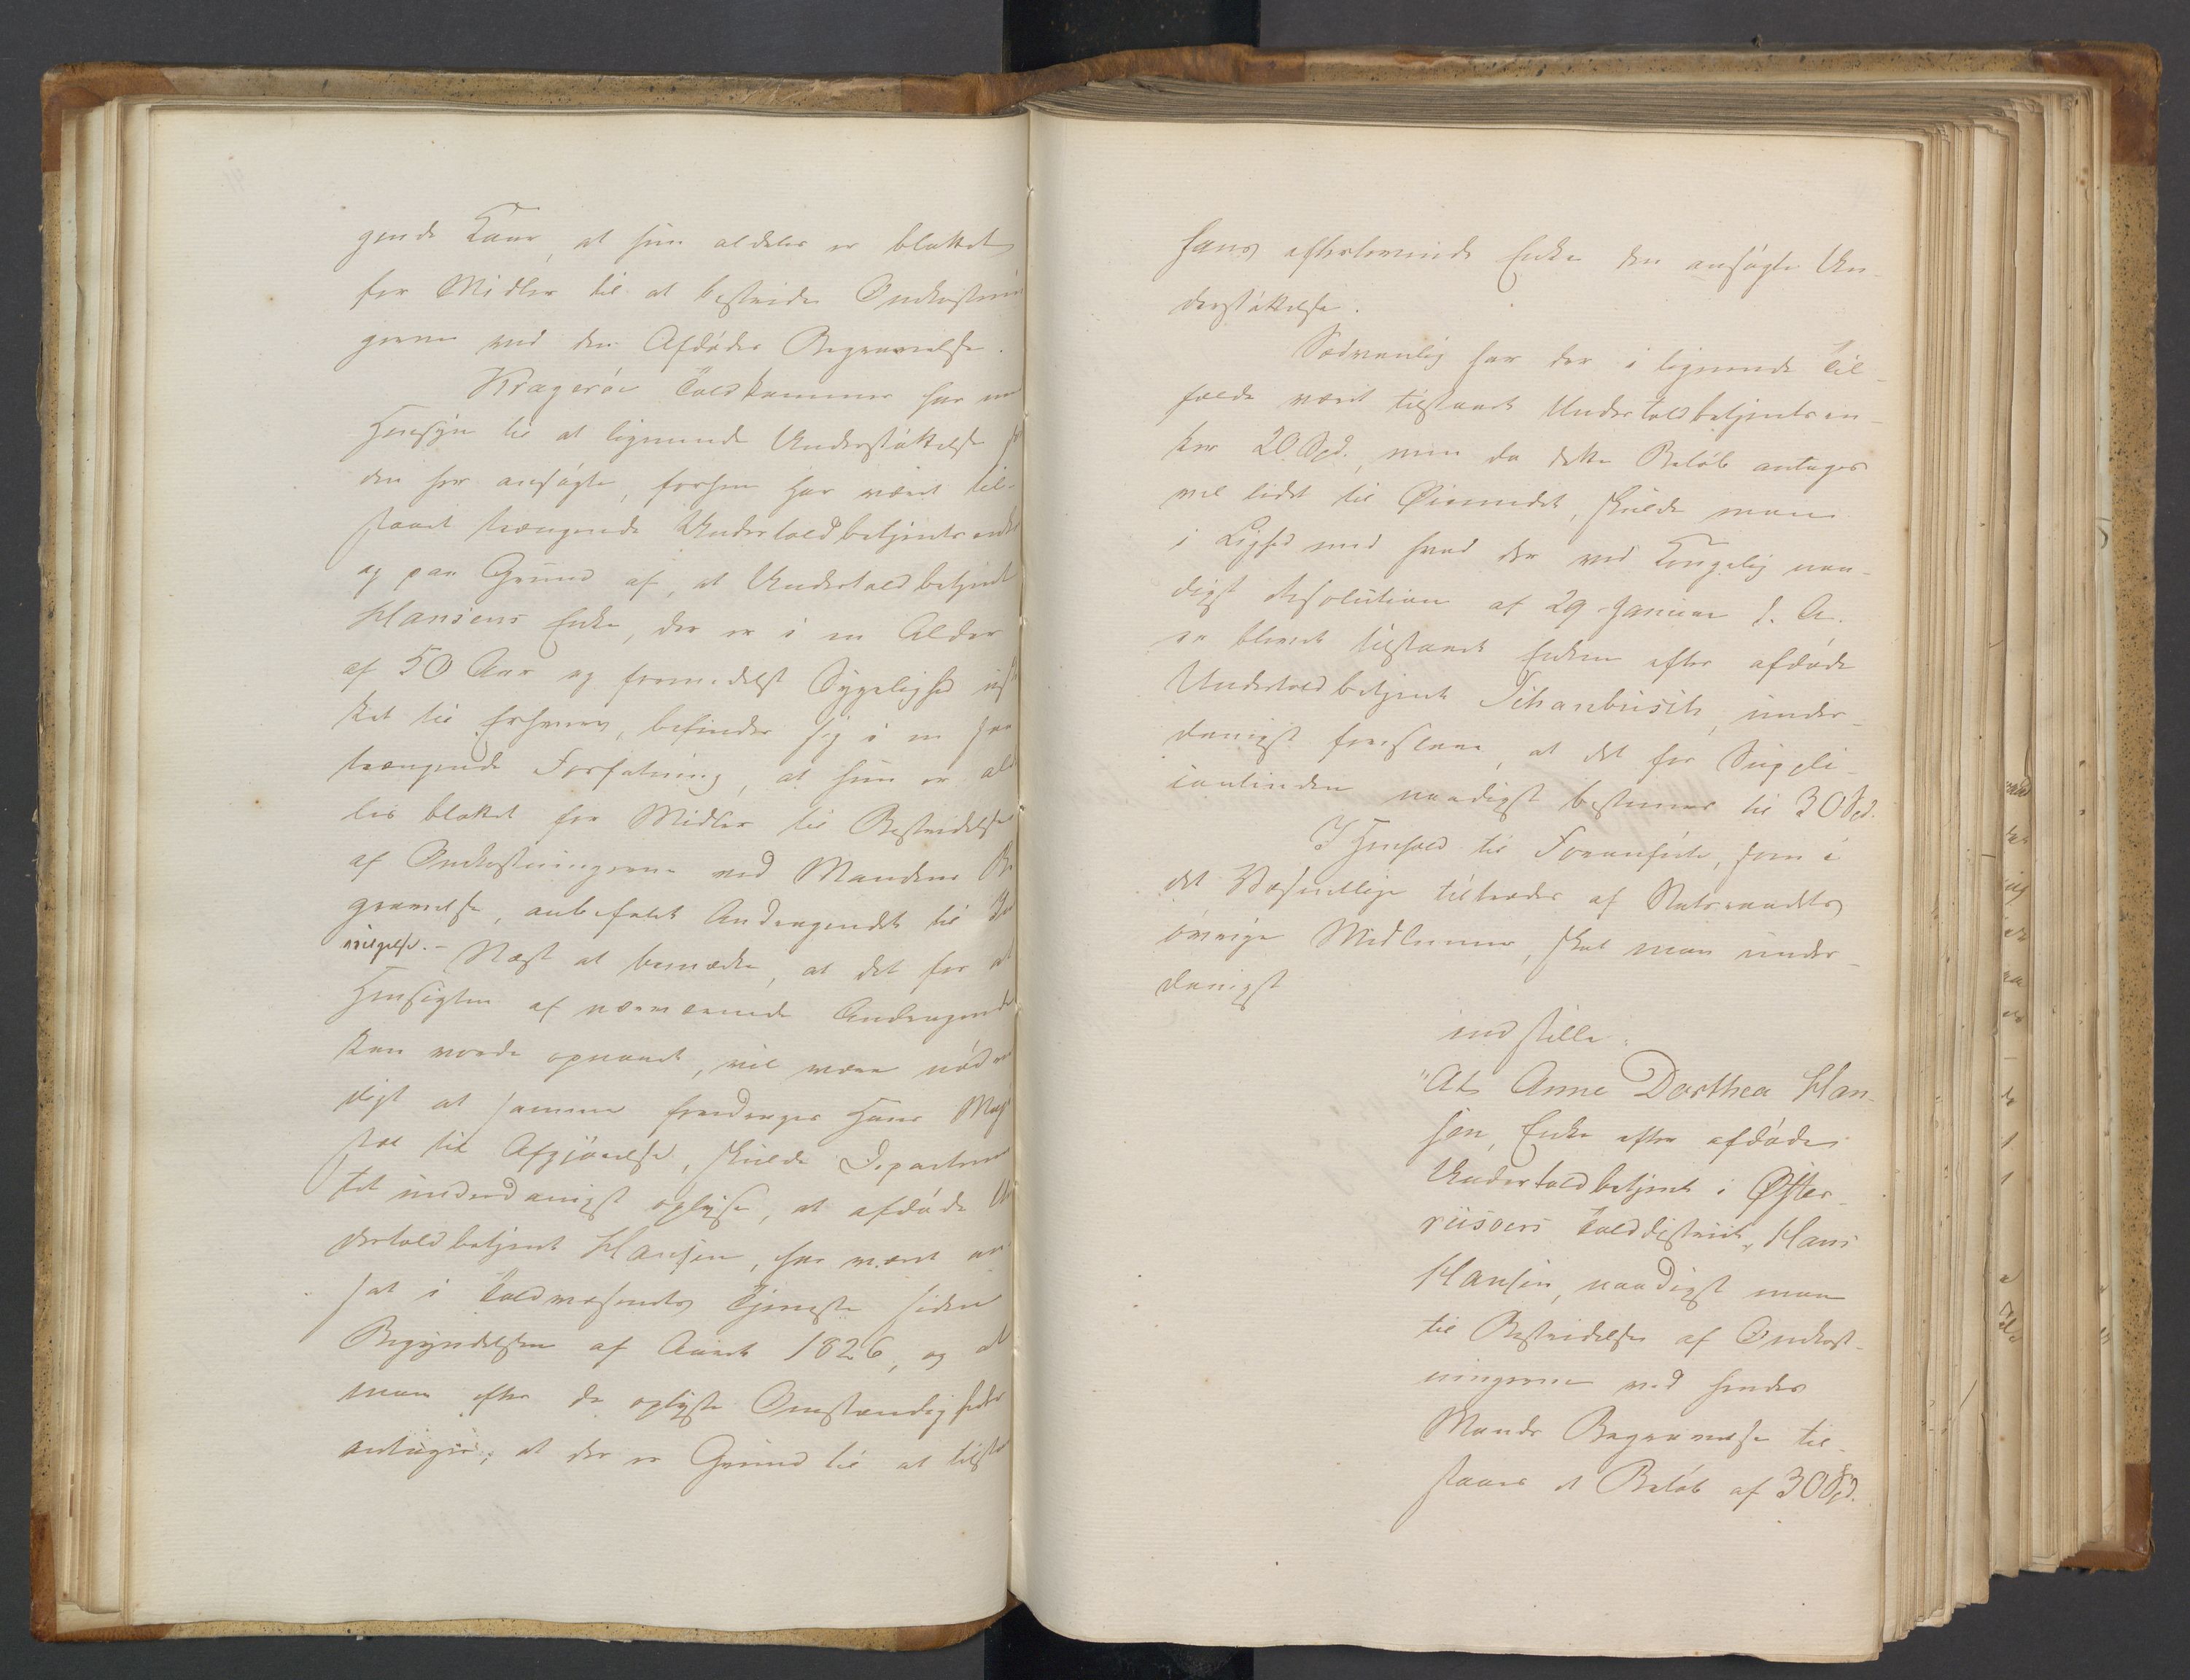 gende Kaar, at hun aldeles er blottet
for Midler til at bestride Omkostnin
gerne ved den Afdødes Begravelse.
Kragerøe Toldkammer har med
Hensyn til at lignende Understøttelse som
den her ansøgte, forhen har været til-
staaet trængende Undertoldbetjentsenker
og paa Grund af, at Undertoldbetjent
Hansens Enke, der er i en Alder
af 50 Aar og formedelst Sygelighed
ket til Erhverv, befinder sig i en saa
trængende Forfatning, at hun er alde
les blottet for Midler til Bestridelse
af Omkostningerne ved Mandens Be
gravelse, anbefalet Andragendet til Ind
vilgelse. - Næst at bemærke, at det for at
Hensigten af nærværende Andragende
kan vorde opnaaet, vil være nødven
digt at samme foredrages Hans Maje
stæt til Afgjørelse, skulde Departemen
tet underdanigst oplyse, at afdøde Un
dertoldbetjent Hansen, har været an
sat i Toldvæsenets Tjeneste siden
Begyndelsen af Aaret 1826, og at
man efter de oplyste Omstændigheder
antager, at der er Grund til at tilstaae
hans efterlevende Enke den ansøgte Un-
derstøttelse.
Sædvanlig har der i lignende Til-
fælde været tilstaaet Undertoldbetjentsen-
ker 20 Spd., men da dette Beløb antages
vel lidet til Øiemedet, skulde man
i Lighed med hvad der ved Kongelig naa-
digst Resolution af 29 Januar d. A.
er blevet tilstaaet Enken efter afdøde
Undertoldbetjent Schanbusch, under-
danigst foreslaae, at det for Suppli-
cantinden naadigst bestemmes til 30 Spd.
I Henhold til Foranførte, som i
det Væsentlige tiltrædes af Statsraadets
øvrige Medlemmer, skal man under-
danigst
indstille:
"At Anne Dorthea Han-
sen, Enke efter afdøde
Undertoldbetjent i Øster-
riisoers Tolddistrict, Hans
Hansen, naadigst maa
til Bestridelse af Omkost-
ningerne ved hendes
Mands Begravelse til-
staaes et Beløb af 30 Spd.